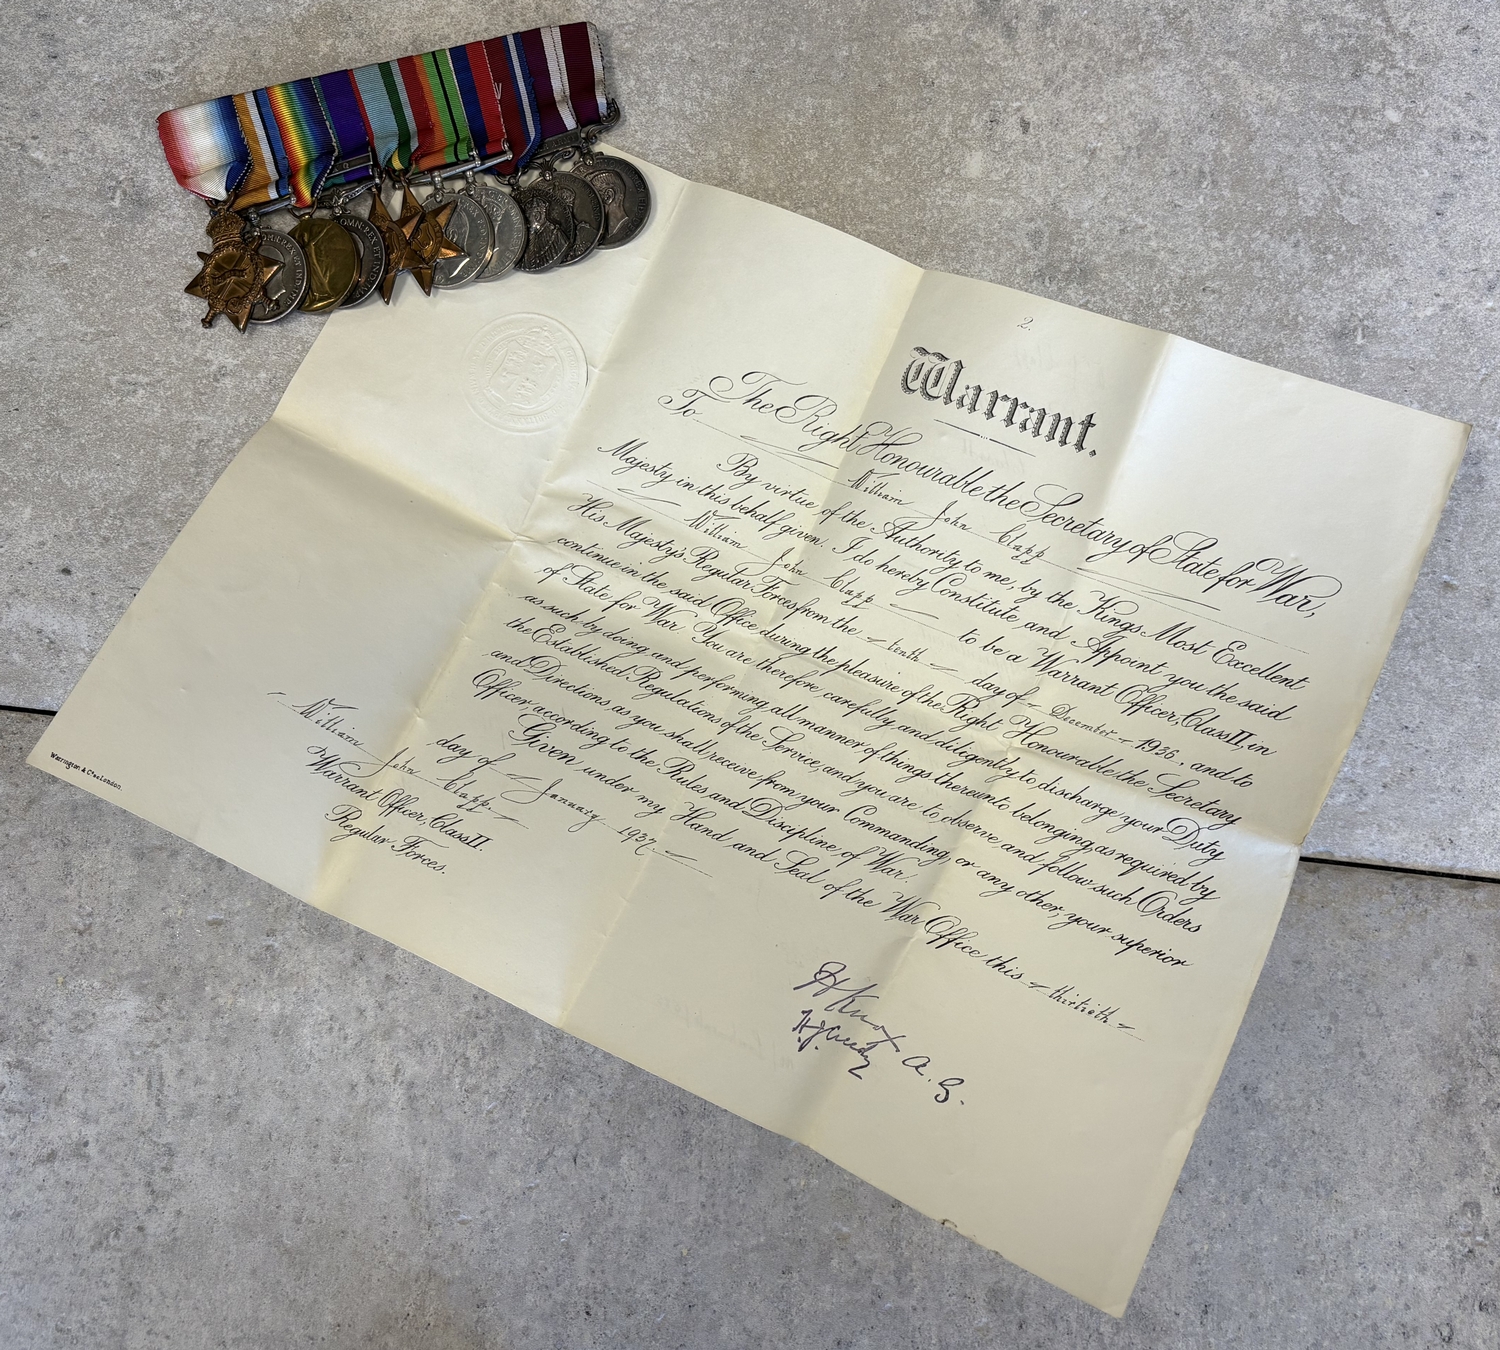 2.
Warrant.
The Right Honourable the Secretary of State for War,
To William John Clapp
By virtue of the Authority to me, by the Kings Most Excellent
Majesty in this behalf given. I do hereby Constitute and Appoint you the said
William John Clapp to be a Warrant Officer, Class II, in
His Majesty's Regular Forces from the tenth day of December 1936, and to
continue in the said Office during the pleasure of the Right Honourable the Secretary
of State for War. You are therefore, carefully and diligently to discharge your Duty
as such by doing and performing all manner of things thereunto belonging, as required by
the Established Regulations of the Service, and you are to observe and follow such Orders
and Directions as you shall receive from your Commanding, or any other, your superior
Officer according to the Rules and Discipline of War.
Given under my Hand and Seal of the War Office this thirtieth
day of January 1937
William John Clapp.
Warrant Officer, Class II.
Regular Forces.
H Knox A.G.
H.J. Creedy
Warrington & Co. London.